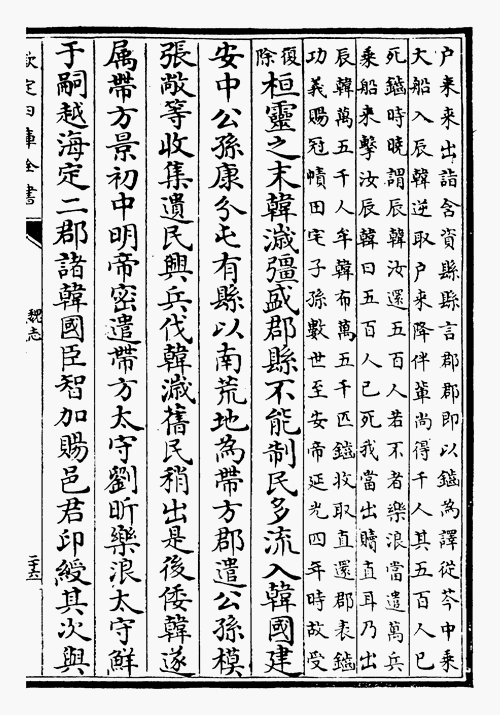 户来来出詣含資縣縣言郡郡即以鑡為譯從芩中乗
大船入辰韓逆取户来降伴輩尚得千人其五百人已
死鑡時曉謂辰韓汝還五百人若不者樂浪當遣萬兵
乗船来擊汝辰韓曰五百人已死我當出贖直耳乃出
辰韓萬五千人牟韓布萬五千匹鑡收取直還郡表鑡
功義賜冠幘田宅子孫數世至安帝延光四年時故受
復除桓靈之末韓濊彊盛郡縣不能制民多流入韓國建
安中公孫康分屯有縣以南荒地為帶方郡遣公孫模
張敞等收集遺民興兵伐韓濊舊民稍出是後倭韓遂
属帶方景初中明帝密遣帶方太守劉昕樂浪太守鮮
于嗣越海定二郡諸韓國臣智加賜邑君印綬其次與
欽定四庫全書
魏志
二十六